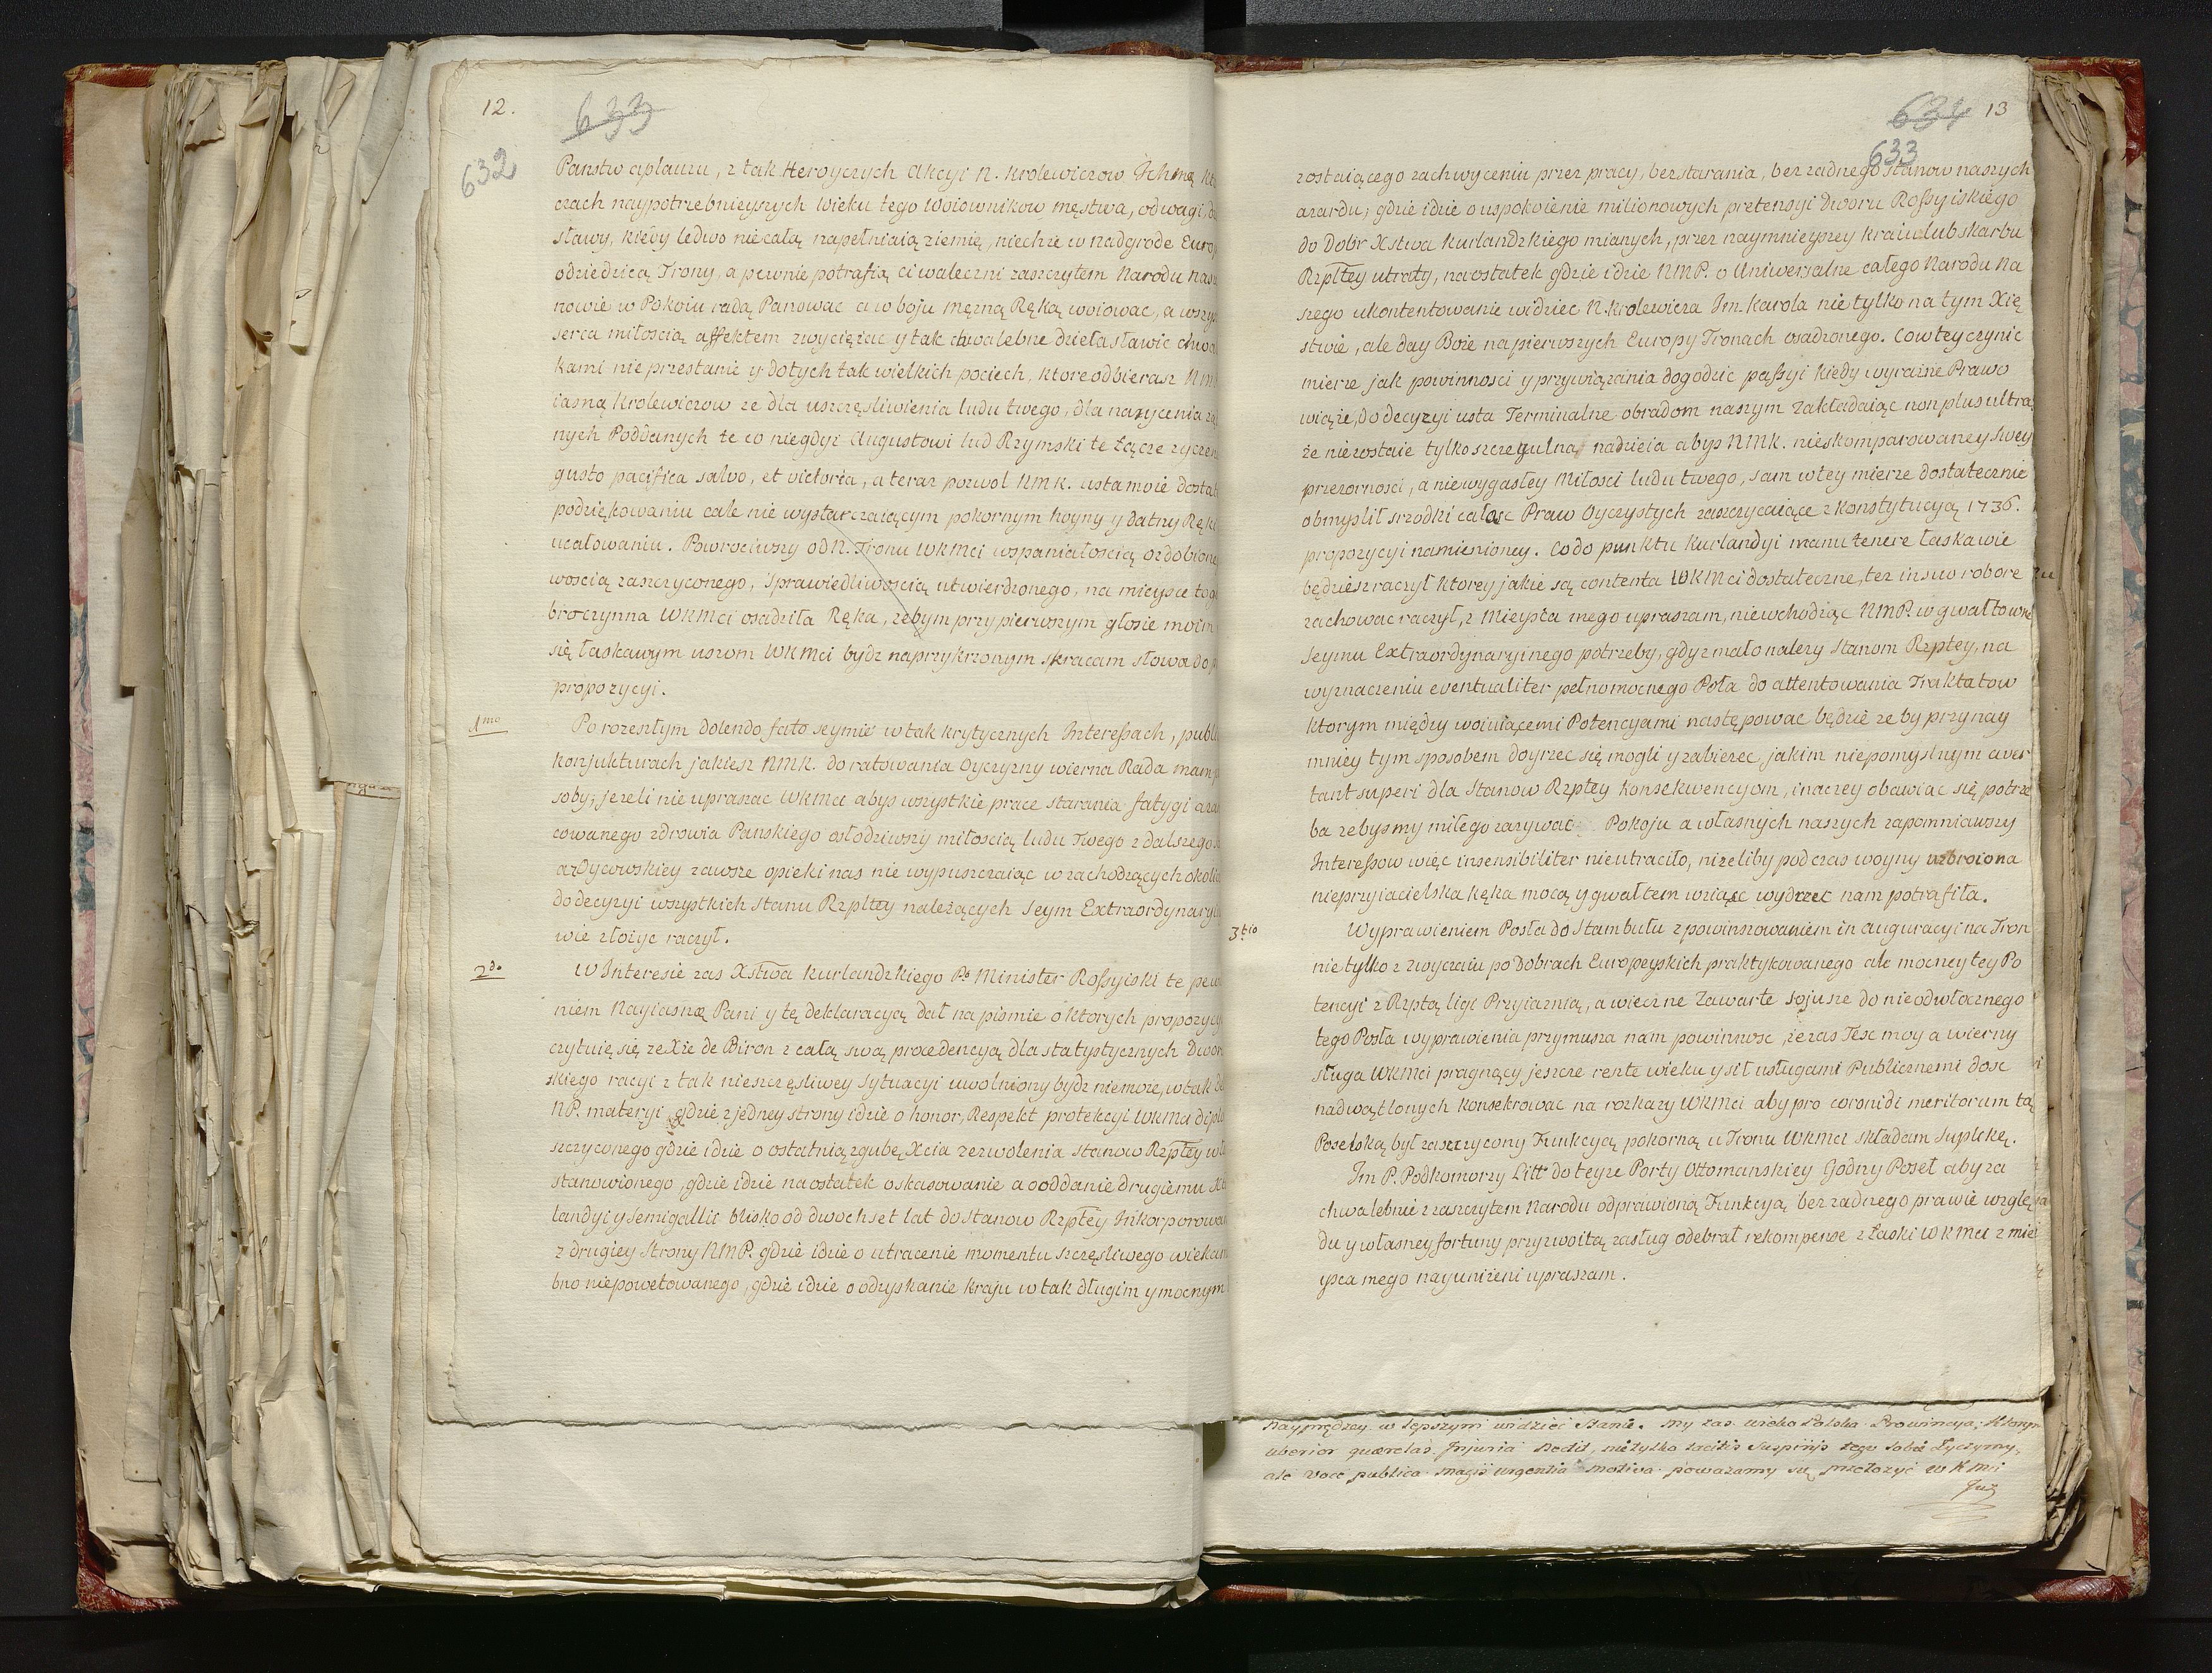 12.
633
632
Panstw aplauzu, z tak Heroycznych Akcyi N. Krolewiczow Ichmę
czach naypotrzebnieyszych Wieku tego Woiownikow męstwa, odwagi,
sławy, kiedy ledwo nie całą napełniaią ziemię, niechże w nadgrode
odziedziczą Trony, a pewnie potrafią ci waleczni zaszczytem Narodu
nowie w Pokoiu radą Panowac a w boju męzną Ręką woiowac, a
serca miłoscią affektem zwyciężac y tak chwalebne dzieła sławic
kami nie przestanie y do tych tak wielkich pociech, ktore odbierasz
iasną Krolewiczow ze dla uszczęsliwienia ludu twego, dla nazycenia
nych Poddanych te co niegdyi Augustowi lud Rzymski te Łącze
gusto pacifica salvo, et victoria, a teraz pozwol NMK. usta moie
podziękowaniu cale nie wystarczaiącym pokornym hoyny y datny
ucałowaniu. Powrociwszy od N. Tronu WKMci wspaniałoscią
woscią zaszczyconego, Sprawiedliwoscią utwierdzonego, na mieysce
broczynna WKMci osadziła Ręka, zebym przy pierwszym głosie moim
się łaskawym uszom WKMci bydz naprzykrzonym skracam słowa do
propozycyi.
1mo
Po rozeszłym dolendo fato seymie w tak krytycznych Interessach,
konjukturach jakiesz NMK. do ratowania Oyczyzny wierna Rada
soby; jezeli nie upraszac WKMci abys wszystkie prace starania fatygi
cowanego zdrowia Panskiego osłodziwszy miłoscią ludu Twego z dalszego
a Oycowskiey zawsze opieki nas nie wypuszczaiąc w zachodzących
do decyzyi wszystkich Stanu Rzpltey należących Seym
wie złożyc raczył.
2do
W Interesie zas Xstwa Kurlandzkiego Po Minister Rossyiski te
niem Nayiasną Pani y tę deklaracyą dał na pismie o ktorych
czytuię się ze Xże de Biron z całą swą procedencyą dla statystycznych
skiego racyi z tak nieszczęsliwey Sytuacyi uwolniony bydz niemoże, w tak
NP. materyi gdzie z jedney strony idzie o honor, Respekt protekcyi WKMci
szczyconego gdzie idzie o ostatnią zgubę Xcia zezwolenia Stanow Rzpltey
stanowionego, gdzie idzie naostatek o skasowanie a o oddanie drugiemu
landyi y Semigallii blisko od dwoch set lat do Stanow Rzpltey
z drugiey strony NMP. gdzie idzie o utracenie momentu szczęsliwego
bno niepowetowanego, gdzie idzie o odzyskanie kraju w tak długim y mocnym
634
13
633
zostaiącego zachwyceniu przez pracy, bez starania, bez zadnego Stanow naszych
azardu; gdzie idzie o uspokoienie milionowych pretensyi Dworu Rossyiskiego
do Dobr Xstwa Kurlandzkiego mianych, przez naymnieyszey kraiu lub skarbu
Rzpltey utraty, naostatek gdzie idzie NMP. o Uniwersalne całego Narodu Na
szego ukontentowanie widziec N. Krolewicza Jm. Karola nie tylko na tym Xię
stwie, ale day Boże na pierwszych Europy Tronach osadzonego. Co w tey czynic
mierze jak powinnosci y przywiązania dogodzic passyi kiedy wyrażne Prawo
wiąże, do decyzyi usta Terminalne obradom naszym Zakładaiąc non plus ultra,
że niezostaie tylko szczegulna nadzieia abys NMK. nieskomparowaney Swey
przezornosci, a niewygasłey Miłosci ludu twego, sam w tey mierze dostatecznie
obmyslił srzodki całosc Praw Oyczystych zaszczycaiące z Konstytucyą 1736.
propozycyi namienioney. Co do punktu Kurlandyi manutenere łaskawie
będziesz raczył ktorey jakie są contenta WKMci dostateczne, tez in suo robore
zachowac raczył, z Mieysca mego upraszam, niewchodząc NMP. w gwałtowne
Seymu Extraordynaryinego potrzeby, gdyz mało nalezy Stanom Rzptey, na
wyznaczeniu eventualiter pełnomocnego Posła do attentowania Traktatow
ktorym między woiuiącemi Potencyami następowac będzie ze by przynay
mniey tym sposobem doyrzec się mogli y zabierzec jakim niepomyslnym aver
tant superi dla Stanow Rzptey konsekwencyom, inaczey obawiac się potrze
ba zebysmy miłego zazywac Pokoju a własnych naszych zapomniawszy
Interessow więc insensibiliter nieutraciło, nizeliby podczas woyny uzbroiona
nieprzyiacielska Ręka mocą y gwałtem wziąsc wydrzec nam potrafiła.
3tio
Wyprawieniem Posła do Stambułu z powinszowaniem in auguracyi na Tron
nie tylko z zwyczaiu po Dobrach Europeyskich praktykowanego ale mocney tey Po
tencyi z Rzptą ligi Przyiaznią, a wieczne Zawarte sojusze do nieodwłocznego
tego Posła wyprawienia przymusza nam powinnosc, że zas Tesc moy a wierny
sługa WKMci pragnący jeszcze reszte wieku y sił usługami Publicznemi dosc
nadwątlonych konsekrowac na rozkazy WKMci aby pro coronidi meritorum tą
Poselską był zaszczycony Funkcyą pokorną u Tronu WKMci składam Suplekę.
Jm P. Podkomorzy Litt do teyze Porty Ottomanskiey Godny Poseł aby za
chwalebnie z zaszczytem Narodu odprawioną Funkcyą bez zadnego prawie wzglę
du y własney fortuny przyzwoitą zasług odebrał rekompense z Łaski WKMci z mie
ysca mego nayunizeni upraszam.
Nayprędzey w lepszym widziec Stanie. My zas wielko Polska Prowincya,
uberior querelas Injuria dedit, nie tylko tacitis Suspiriis tego Sobie Życzymy,
ale voce publica magis urgentia motiva poważamy się przełożyć WKMci
Juz